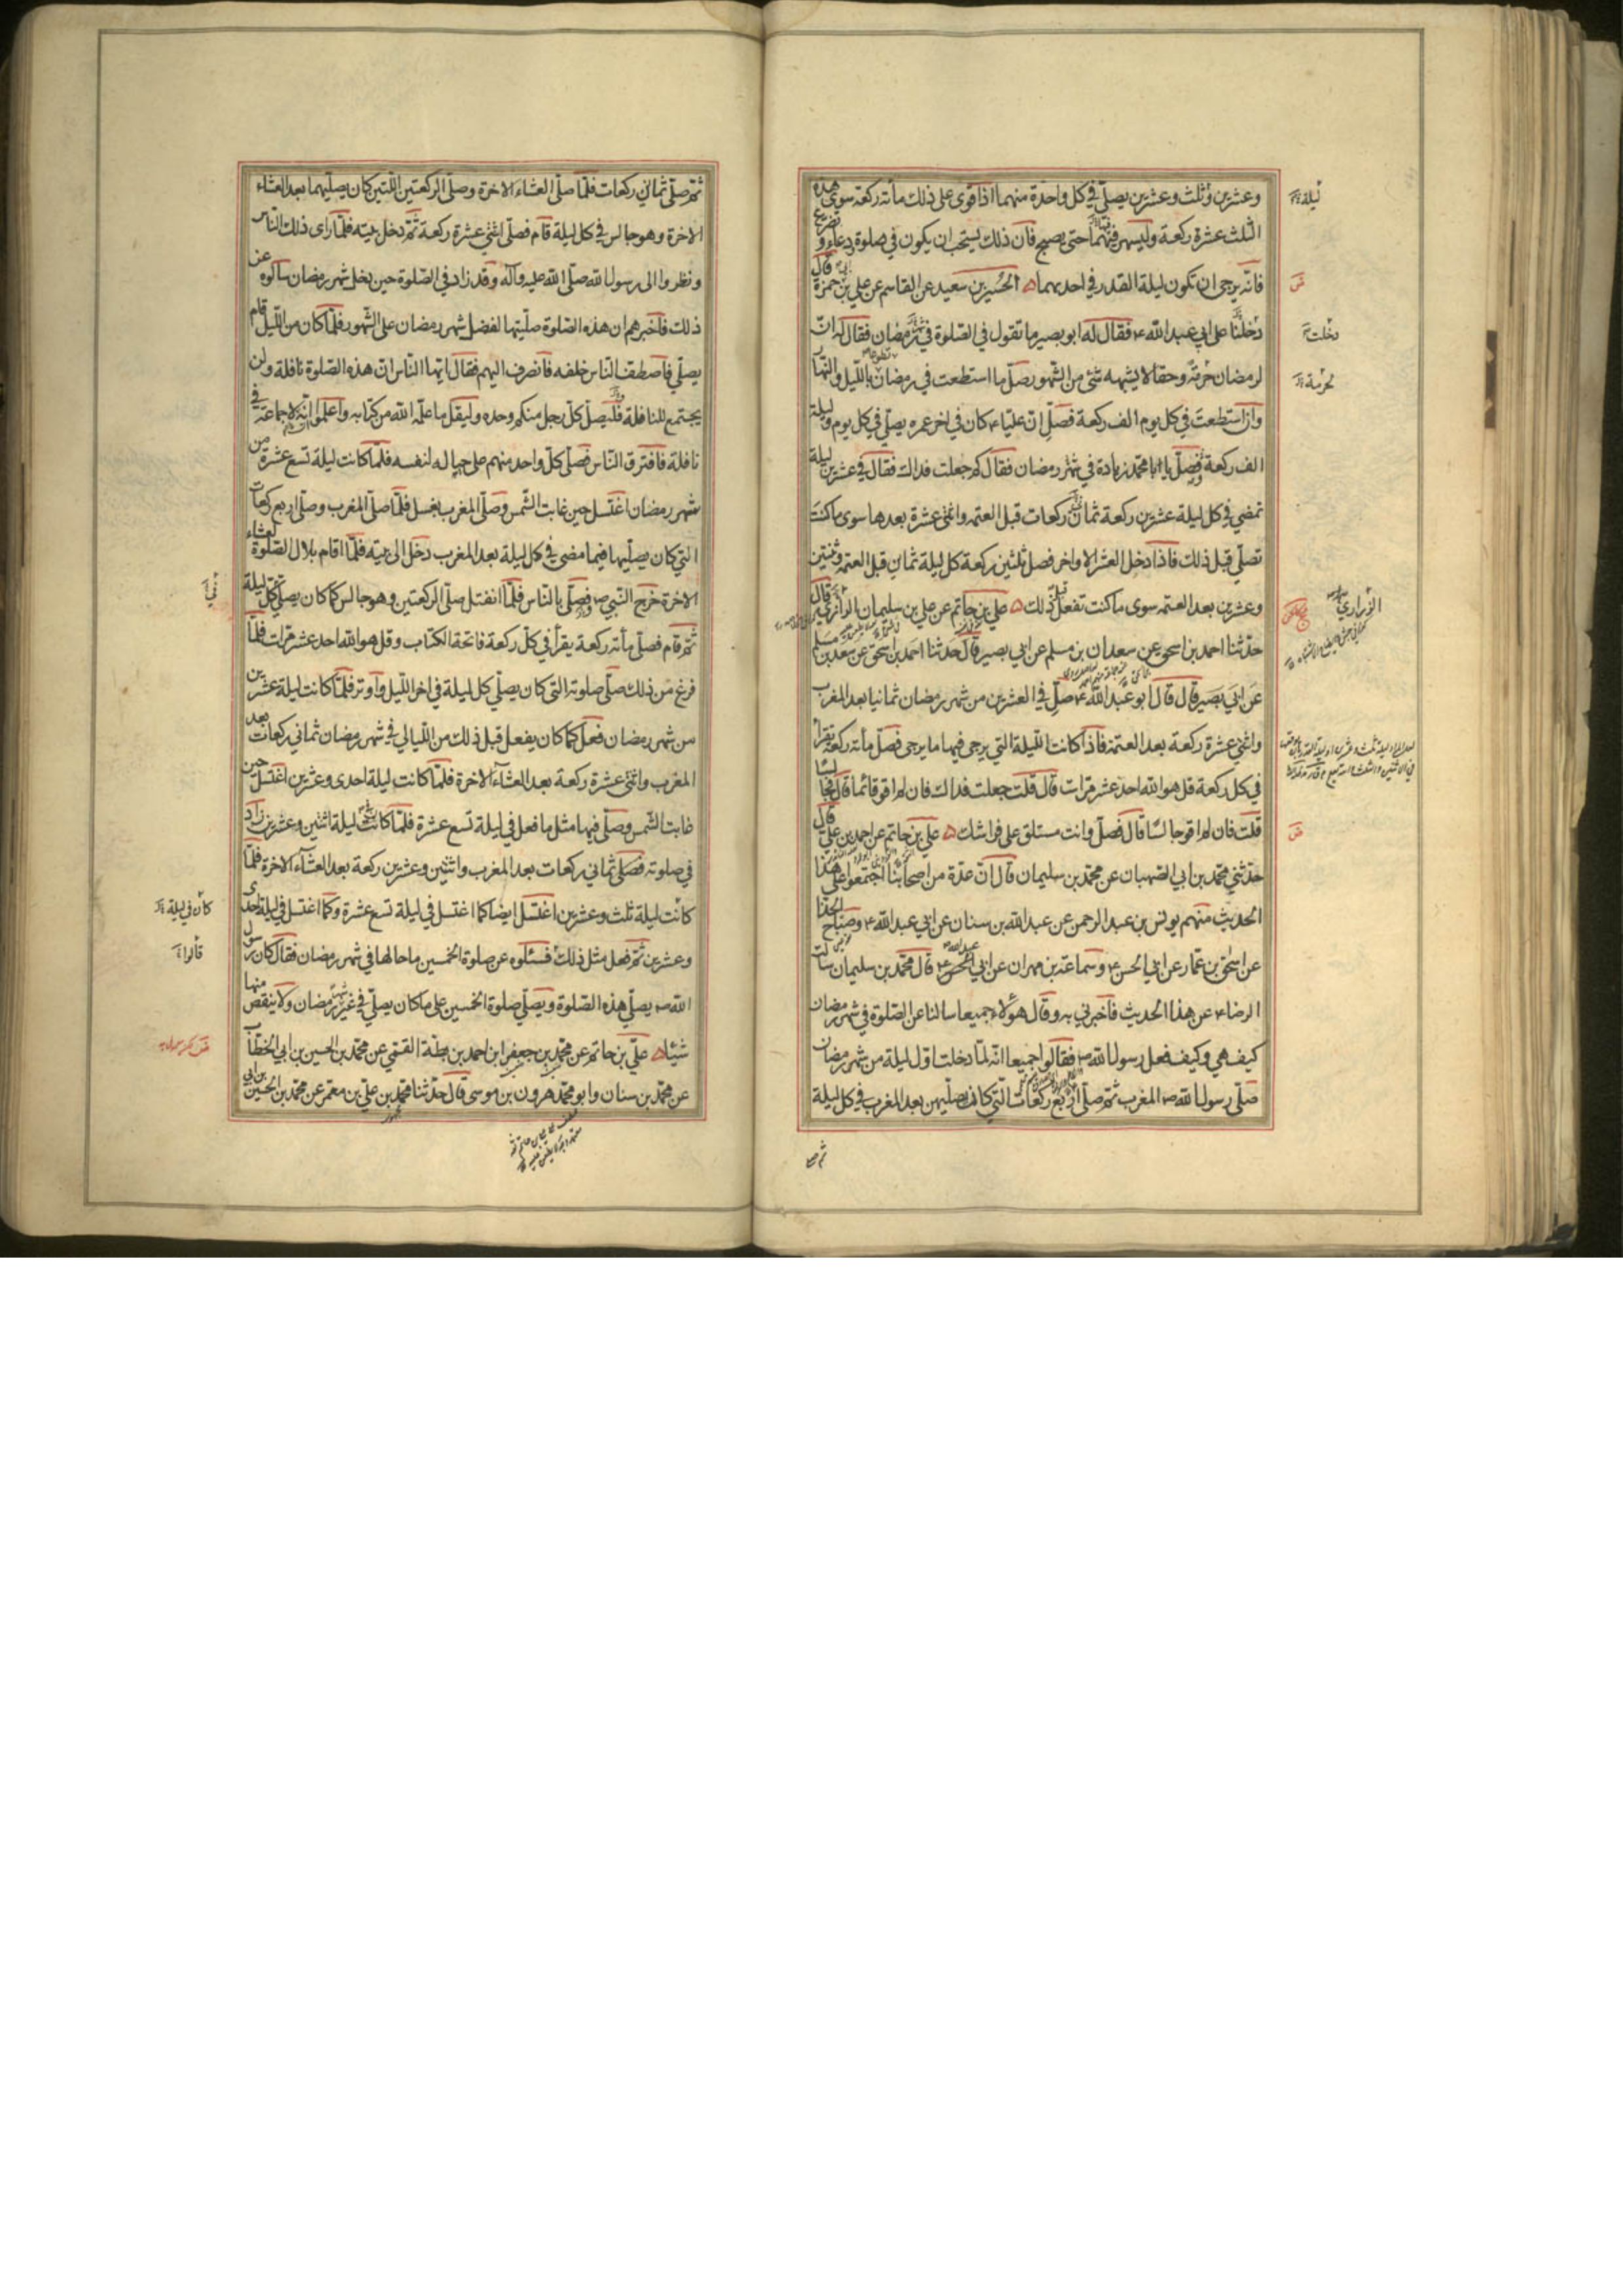 وعشرين وثلث وعشرين يصلّي في كل واحدة منهما اذا قوى على ذلك مأته ركعة سوى هذه
الثلث عشرة ركعة وليسهر فيهما حتى يصبح فان ذلك يستحب ان يكون في صلوة ودعاء وتضرع
فانّه يرجى ان تكون ليلة القدر في احديهما الحسين بن سعيد عن القاسم عن علي بن ابي حمزة قال
دخلنا على ابي عبد الله ع فقال له ابو بصير ما تقول في الصلوة في شهر رمضان فقال له انّ
لرمضان حرمة وحقا لا يشبهه شئ من الشهور صلّ ما استطعت في رمضان تطوعا بالليل والنهار
وان استطعت في كل يوم الف ركعة فصلّ انّ عليّا ع كان في اخر عمره يصلّي في كل يوم وليلة
الف ركعة فصلّ يا ابا محمد زيادة في شهر رمضان فقال كم جعلت فداك فقال في عشرين ليلة
تمضي في كل ليلة عشرين ركعة ثمان ركعات قبل العتمه واثنتى عشرة بعدها سوى ما كنت
تصلّي قبل ذلك فاذا دخل العشر الاواخر فصل ثلثين ركعة كل ليلة ثمان قبل العتمة وثنتين
وعشرين بعد العتمه سوى ما كنت تفعل قبل ذلك علي بن حاتم عن علي بن سليمان الرازي قال
حدّثنا احمد بن اسحق عن سعدان بن مسلم عن ابي بصير قال حدثنا احمد بن اسحق عن سعدان بن مسلم
عن ابي بصير قال قال ابو عبد الله ع صلّ في العشرين من شهر رمضان ثمانيا بعد المغرب
واثنى عشرة ركعة بعد العتمة فاذا كانت الليلة التي يرجى فيها ما يرجى فصلّ مأته ركعة تقرأ
في كل ركعة قل هو الله احد عشر مرات قال قلت جعلت فداك فان لم اقو قائما قال فجالسا
قلت فان لم اقو جالسا قال فصلّ وانت مستلق على فراشك علي بن حاتم عن احمد بن علي قال
حدّثني محمد بن ابي الصهبان عن محمد بن سليمان قال انّ عدّة من اصحابنا اجتمعوا على هذا
الحديث منهم يونس بن عبد الرحمن عن عبد الله بن سنان عن ابي عبد الله ع وصبّاح الحذّا
عن اسحق بن عمّار عن ابي الحسن ع وسماعة بن مهران عن ابي عبد الله ع قال محمّد بن سليمان سالت
الرضا ع عن هذا الحديث فاخبرني به وقال هؤلاء جميعا سالنا عن الصلوة في شهر رمضان
كيف هي وكيف فعل رسول الله ص فقالوا جميعا انّه لمّا دخلت اوّل ليلة من شهر رمضان
صلّى رسول الله ص المغرب ثمّ صلّى اربع ركعات التي كان يصليهن بعد المغرب في كل ليلة
ثم صلى
ليلة
دخلت
لحرمة
الزراري
ثمّ صلّى ثماني ركعات فلمّا صلّى العشاء الاخرة وصلّى الركعتين اللّتين كان يصلّيهما بعد العشاء
الاخرة وهو جالس في كل ليلة قام فصلّى اثنى عشرة ركعة ثمّ دخل بيته فلمّا رأى ذلك الناس
ونظروا الى رسول الله صلّى الله عليه وآله وقد زاد في الصّلوة حين دخل شهر رمضان سالوه عن
ذلك فاخبرهم ان هذه الصّلوة صلّيتها لفضل شهر رمضان على الشّهور فلمّا كان من اللّيل قام
يصلّي فاصطف النّاس خلفه فانصرف اليهم فقال ايّها النّاس انّ هذه الصّلوة نافلة ولن
يجتمع للنافلة فليصل كلّ رجل منكم وحده وليقل ما علّمه الله من كتابه واعلموا انّه لا جماعة في
نافلة فافترق النّاس فصلّى كلّ واحد منهم على حياله لنفسه فلمّا كانت ليلة تسع عشرة من
شهر رمضان اغتسل حين غابت الشّمس وصلّى المغرب بغسل فلمّا صلّى المغرب وصلّى اربع ركعات
التي كان يصلّيها فيما مضى في كل ليلة بعد المغرب دخل الى بيته فلمّا اقام بلال لصلوة العشاء
الاخرة خرج النّبي ص فصلّى بالنّاس فلمّا انفتل صلّى الركعتين وهو جالس كما كان يصلّي كل ليلة
ثمّ قام فصلّى مأته ركعة يقرأ في كلّ ركعة فاتحة الكتاب وقل هو الله احد عشر مرّات فلمّا
فرغ من ذلك صلّى صلوته التي كان يصلّي كل ليلة في اخر اللّيل واوتر فلمّا كانت ليلة عشرين
من شهر رمضان فعل كما كان يفعل قبل ذلك من اللّيالي في شهر رمضان ثماني ركعات بعد
المغرب واثنتى عشرة ركعة بعد العشآء الاخرة فلمّا كانت ليلة احدى وعشرين اغتسل حين
غابت الشّمس وصلّى فيها مثل ما فعل في ليلة تسع عشرة فلمّا كانت ليلة اثنين وعشرين زاد
في صلوته فصلّى ثماني ركعات بعد المغرب واثنين وعشرين ركعة بعد العشآء الاخرة فلمّا
كانت ليلة ثلث وعشرين اغتسل ايضا كما اغتسل في ليلة تسع عشرة وكما اغتسل في ليلة احدى
وعشرين ثمّ فعل مثل ذلك فسئلوه عن صلوة الخمسين ما حالها في شهر رمضان فقال كان رسول
الله ص يصلّي هذه الصّلوة ويصلّي صلوة الخمسين على ما كان يصلّي في غير شهر رمضان ولا ينقص منها
شيئا علي بن حاتم عن محمّد بن جعفر بن احمد بن بطّة القمّي عن محمّد بن الحسين بن ابي الخطّاب
عن محمّد بن سنان وابو محمّد هرون بن موسى قال حدّثنا محمّد بن علي بن معمر عن محمّد بن الحسين بن ابي
كان في ليلة
قالوا